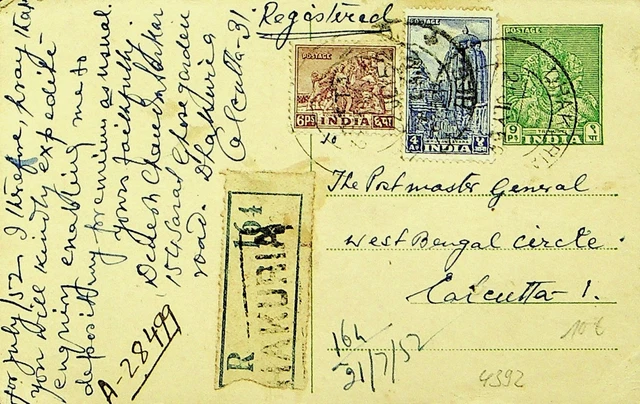 Registered
POSTAGE
6PS INDIA ६पा
POSTAGE
4 AS INDIA ४ आ
POSTAGE
9 PS INDIA ९ पा
The Postmaster General
West Bengal Circle.
Calcutta-1.
164
21/7/52
106
4392
R 164
DHAKURIA
for July/52. I therefore, pray that
you will kindly expedite
enquiry enabling me to
depositing premium as usual.
Yours faithfully
Debesh Chandra
15 Sarat Ghose garden
road. Dhakuria
Calcutta-31
A-28499